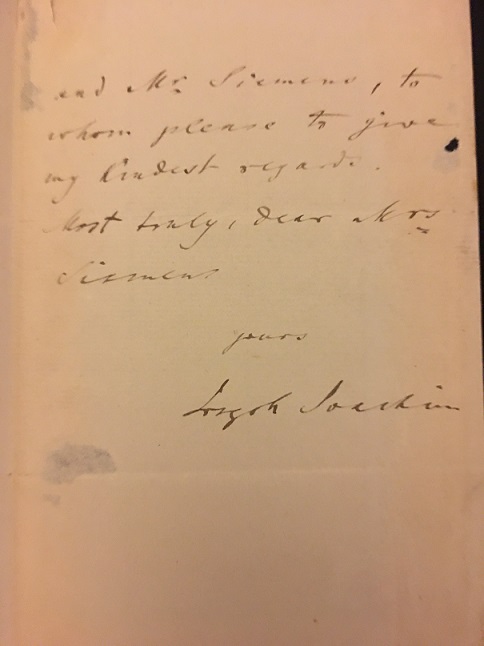 and Mr. Siemens, to
whom please to give
my kindest regards.
Most truly, dear Mrs
Siemens
yours
Joseph Joachim